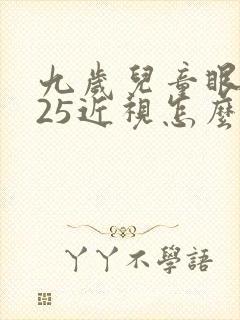 九歲兒童眼
25近視怎麼
丫丫不學語